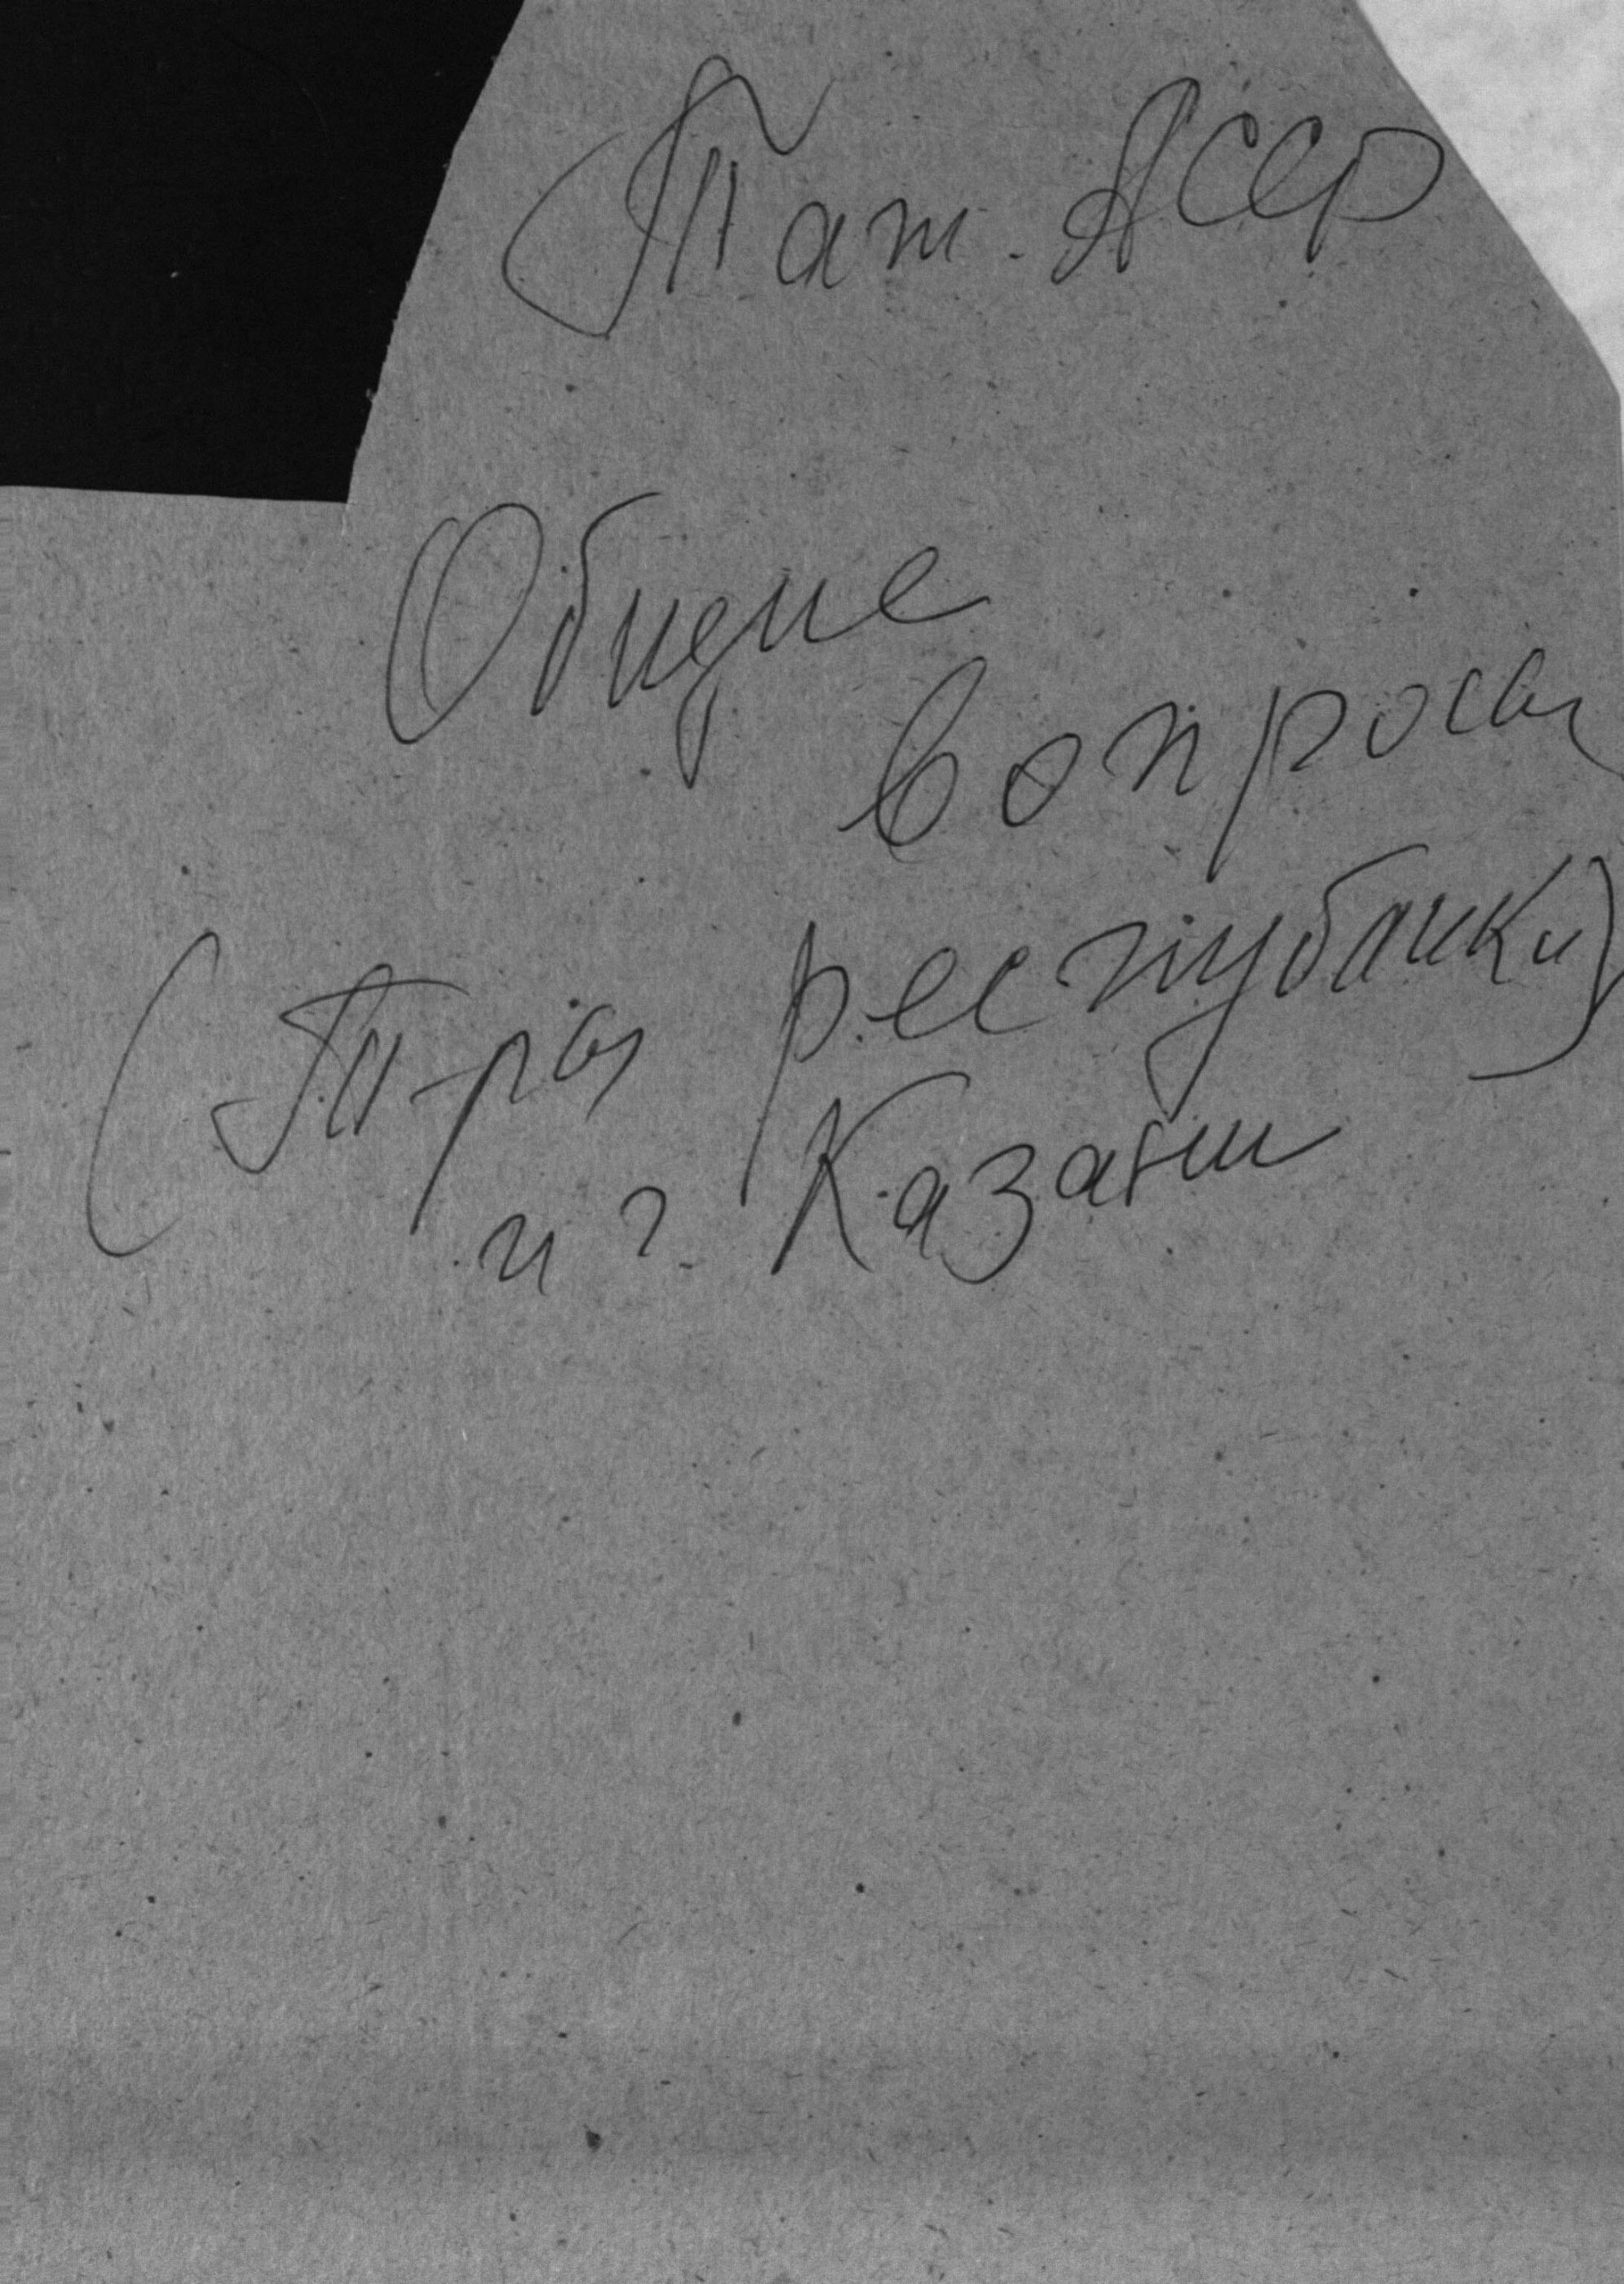 Тат. АССР
Общие
вопросы
(Т-ры республики)
и г. Казани